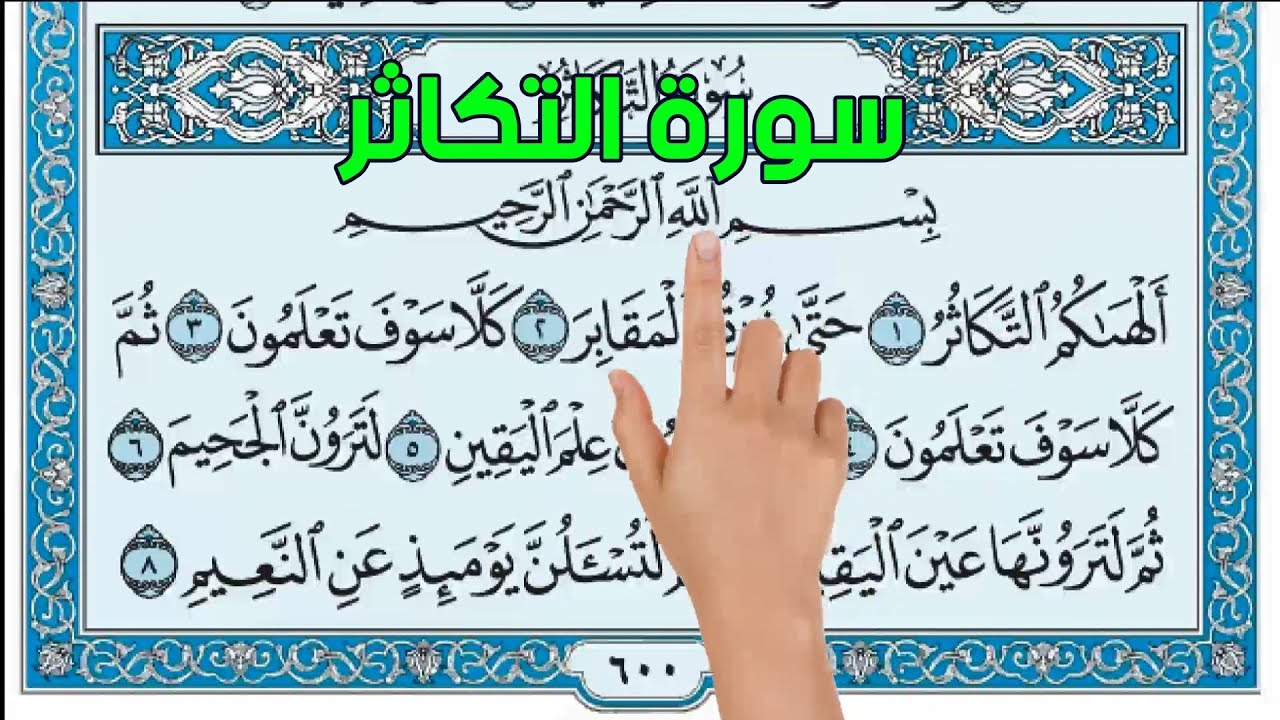 سُورَةُ التَّكَاثُرِ
سورة التكاثر
بِسْمِ ٱللَّهِ ٱلرَّحْمَٰنِ ٱلرَّحِيمِ
أَلْهَىٰكُمُ ٱلتَّكَاثُرُ ١ حَتَّىٰ زُرْتُمُ ٱلْمَقَابِرَ ٢ كَلَّا سَوْفَ تَعْلَمُونَ ٣ ثُمَّ
كَلَّا سَوْفَ تَعْلَمُونَ ٤ عِلْمَ ٱلْيَقِينِ ٥ لَتَرَوُنَّ ٱلْجَحِيمَ ٦
ثُمَّ لَتَرَوُنَّهَا عَيْنَ ٱلْيَقِينِ لَتُسْـَٔلُنَّ يَوْمَئِذٍ عَنِ ٱلنَّعِيمِ ٨
٦٠٠